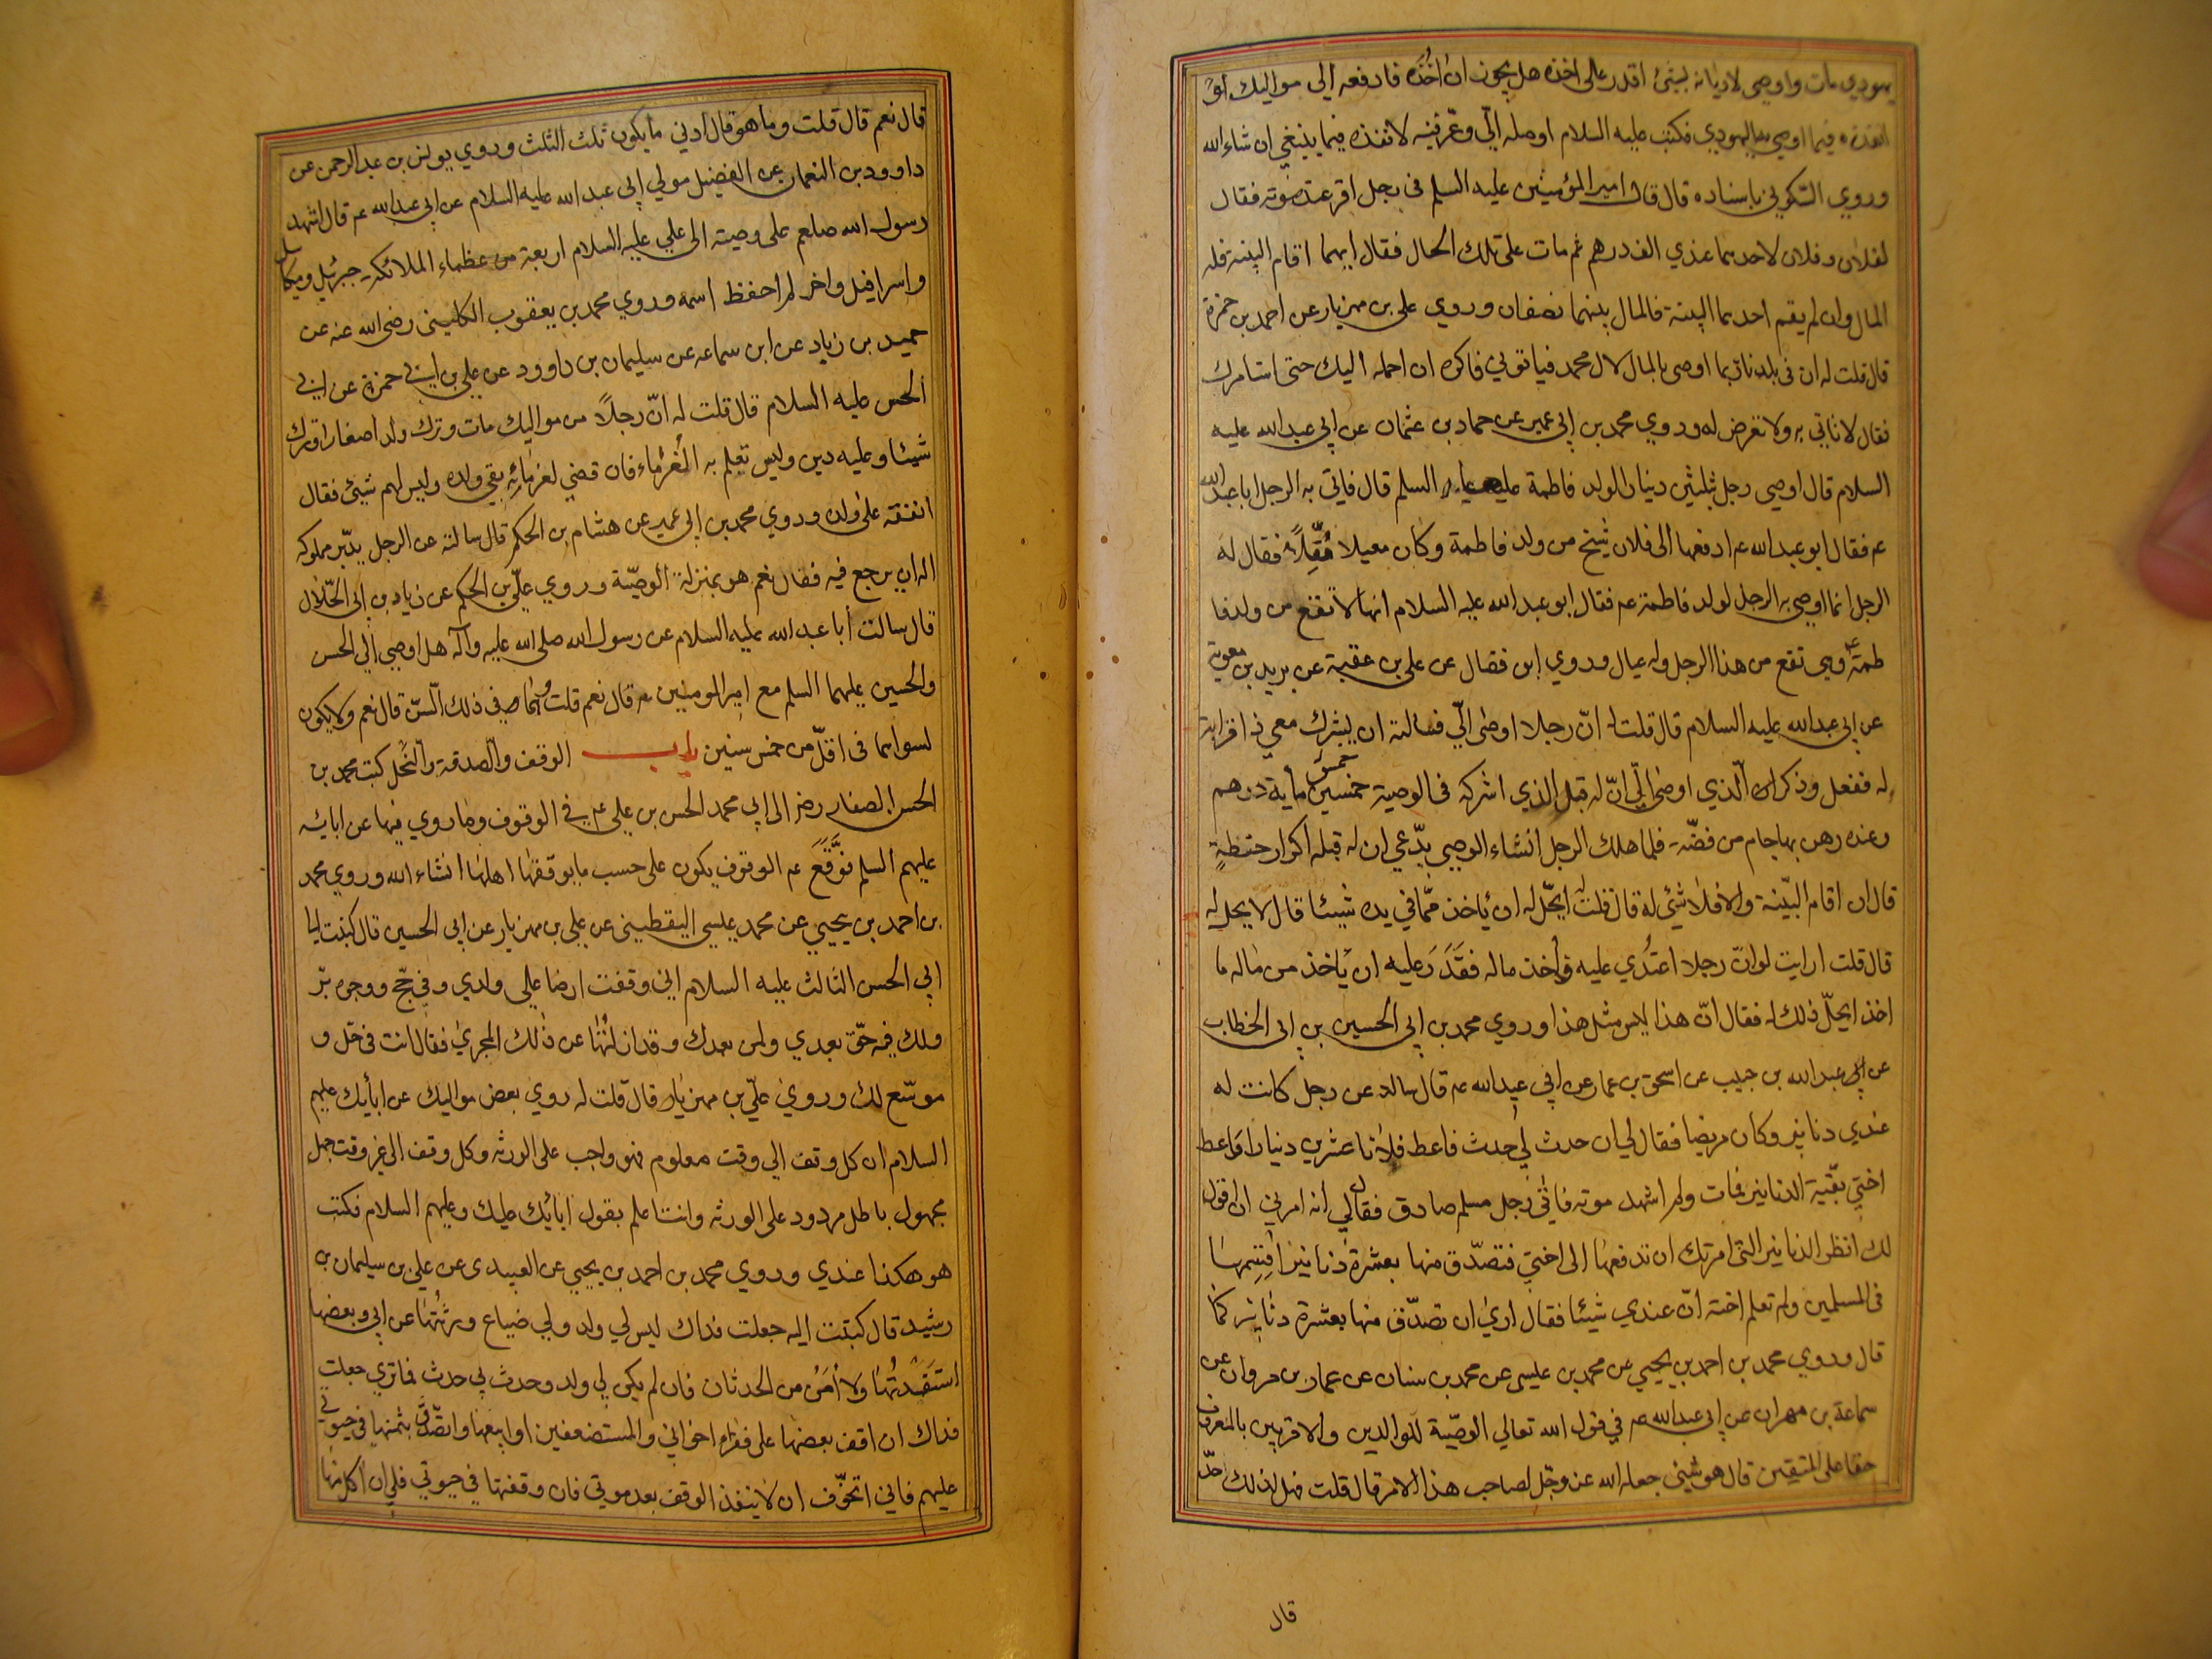 يهودي مات واوصي لاديانه بشئ اقدر علي اخذه هل يجوز ان اخذه فادفعه إلي مواليك أو
انفذه فيما اوصي به اليهودي فكتب عليه السلام اوصله إليّ وعرّفنيه لانفذه فيما ينبغي ان شاء الله
وروي السّكوني باسناده قال قال امير المؤمنين عليه السلم في رجل اقر عند موته فقال
لفلان وفلان لاحدهما عندي الف درهم ثم مات على تلك الحال فقال ايهما اقام البينة فله
المال وان لم يقم احدهما البينة فالمال بينهما نصفان وروي علي بن مهزيار عن احمد بن حمزة
قال قلت له ان في بلدنا ربما اوصى بالمال لال محمد فياتوني فاكره ان احمله اليك حتى استامرك
فقال لا تاتني به ولا تعرض له وروي محمد بن إبي عمير عن حماد بن عثمان عن إبي عبد الله عليه
السلام قال اوصى رجل بثلثين دينارا لولد فاطمة السلم قال فاتي به الرجل ابا عبد الله
عم فقال ابو عبد الله عم ادفعها الى فلان شيخ من ولد فاطمة وكان معيلا مُقِلّاً فقال له
الرجل انما اوصي به الرجل لولد فاطمة عم فقال ابو عبد الله عليه السلام انها لا تقع من ولد فا
طمة وهي تقع من هذا الرجل وله عيال وروي ابن فضال عن علي بن عقبة عن بريد بن معوية
عن إبي عبد الله عليه السلام قال قلت له انّ رجلا اوصى إليّ فسالته ان يشرك معي ذا قرابة
له ففعل وذكر ان الّذي اوصى إليّ انّ له قبل الذي اشركه في الوصية خمسين خمس ماية درهم
وعنده رهن بها جام من فضّة فلما هلك الرجل انشاء الوصي يدّعي ان له قبله اكرار حنطةٍ
قال ان اقام البيّنة والا فلا شئ له قال قلت ايحلّ له ان ياخذ ممّا في يده شيئا قال لا يحل له
قال قلت ارايت لو انّ رجلا اعتُدي عليه فاخذ ماله فقَدَرَ عليه ان ياخذ من ماله ما
اخذ ايحلّ ذلك له فقال انّ هذا ليس مثل هذا وروي محمد بن إبي الحسين بن إبي الخطاب
عن إبي عبد الله بن جبيب عن اسحق بن عمار عن إبي عبد الله عم قال سالته عن رجل كانت له
عندي دنانير وكان مريضا فقال لي ان حدث لي حدث فاعط فلانا عشرين دينارا واعط
اختي بقيّة الدنانير فمات ولم اشهد موته فاتٰي رجل مسلم صادق فقال لي انه امرني ان اقول
لك انظر الدنانير التي امرتك ان تدفعها الى اختي فتصدّق منها بعشرة دنانير اقسمها
في المسلمين ولم تعلم اخته انّ عندي شيئا فقال اري ان تصدّق منها بعشرة دنانير كما
قال وروي محمد بن احمد بن يحيي عن محمد بن عليسى عن محمد بن سنان عن عمار بن مروان عن
سماعة بن مهران عن إبي عبد الله عم في قول الله تعالي الوصيّة للوالدين والاقربين بالمعروف
حقا على المتقين قال هو شيئ جعله الله عز وجل لصاحب هذا الامر قال قلت فهل لذلك حدّ
قال
قال نعم قال قلت وما هو قال أدني ما يكون ثلث الثلث وروي يونس بن عبد الرحمن عن
داوود بن النعمان عن الفضيل مولي إبي عبد الله عليه السلام عن إبي عبد الله عم قال اشهد
رسول الله صلعم على وصيته الى علي عليه السلام اربعة من عظماء الملائكة جبرئيل وميكائيل
واسرافيل واخر لم احفظ اسمه وروي محمد بن يعقوب الكليني رضى الله عنه عن
حميد بن زياد عن ابن سماعه عن سليمان بن داوود عن علي بن ابي حمزة عن ابي
الحسن عليه السلام قال قلت له انّ رجلاً من مواليك مات وترك ولدا صغارا وترك
شيئا وعليه دين وليس تعلم به الغُرماء فان قضي لغرمائه بقي ولده وليس لهم شيئ فقال
انفقه علي ولده وروي محمد بن إبي عمير عن هشام بن الحكم قال سالته عن الرجل يدبّر مملوكه
اله ان يرجع فيه فقال نعم هو بمنزلة الوصيّة وروي عليّ بن الحكم عن زياد بن إبي الحلّال
قال سالت أبا عبد الله عليه السلام عن رسول الله صلى الله عليه وآله هل اوصي إلي الحسن
والحسين عليهما السلم مع امير المومنين عم قال نعم قلت وهما في ذلك السّن قال نعم ولا يكون
لسواهما في اقلّ من خمس سنين باب الوقف والصّدقة والنحل كتب محمد بن
الحسن الصفار رضه الى إبي محمد الحسن بن علي عم في الوقوف وما روي فيها عن ابائه
عليهم السلم فوَقَّعَ عم الوقوف يكون على حسب ما يوقفها اهلها انشاء الله وروي محمد
بن احمد بن يحيي عن محمد بن عليسي اليقطيني عن علي بن مهزيار عن إبي الحسين قال كتبت إلي
إبي الحسن الثالث عليه السلام اني وقفت ارضا علي ولدي وفي حجّ ووجوه برّ
ولك فيه حقّ بعدي ولمن بعدك وقد ازلتُها عن ذلك المجريٰ فقال انت في حل و
موسّع لك وروي عليّ بن مهزيار قال قلت له روي بعض مواليك عن ابأيك عليهم
السلام ان كل وقف الي وقت معلوم فهو واجب على الورثه وكل وقف الى غير وقت جهل
مجهول باطل مردود على الورثه وانت اعلم بقول ابائك عليك وعليهم السلام فكتب
هو هكذا عندي وروي محمد بن احمد بن يحيي عن العبيدى عن علي بن سيلمان بن
رشيد قال كتبت اليه جعلت فداك ليس لي ولد ولي ضياع ورثتُها عن إبي وبعضها
استفدتُها ولا أمَنُ من الحدثان فان لم يكن لي ولد وحدث بي حدث فما تري جعلت
فداك ان اقف بعضها على فقراء اخواني والمستضعفين او ابيعها واتصدّق بثمنها في حيوتي
عليهم فاني اتخوّف ان لا ينفذ الوقف بعد موتي فان وقفتها في حيوتي فلي ان اكل منها